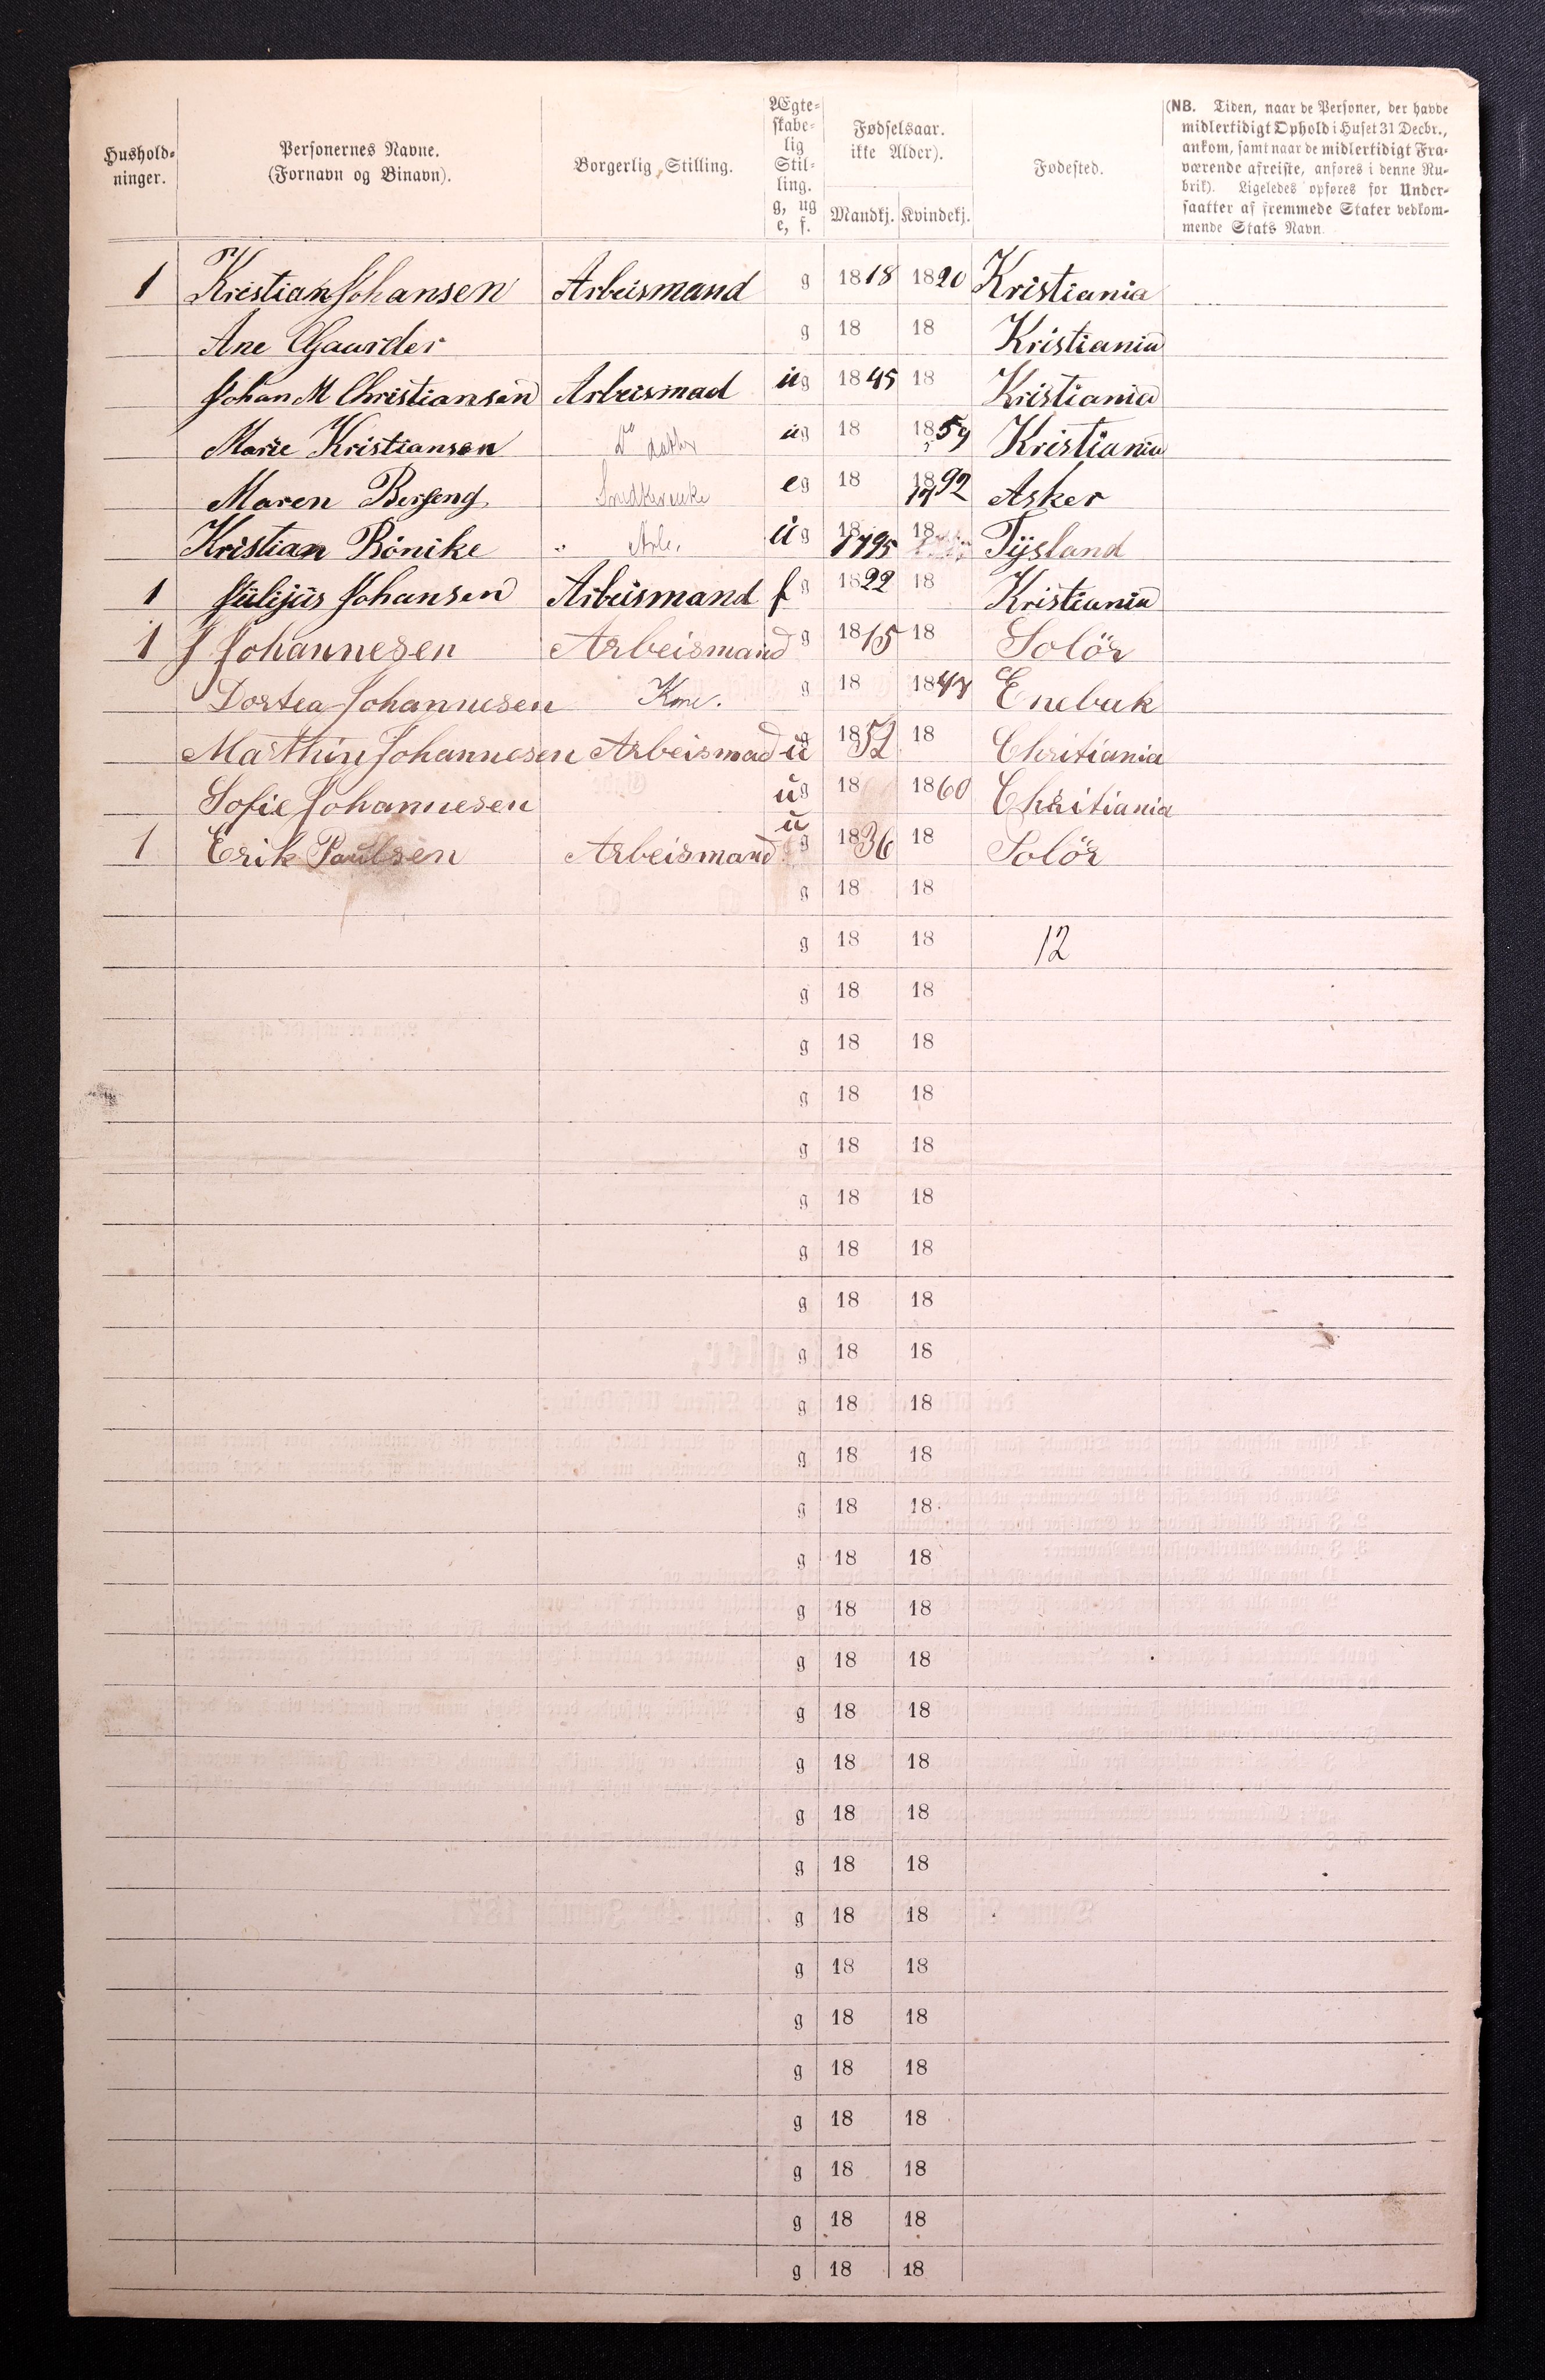 Hushold-
ninger.
Personernes Navne.
(Fornavn og Binavn).
Borgerlig Stilling.
Ægte-
skabe-
lig
Stil-
ling.
g, ug
e, f.
Fødselsaar.
ikke Alder).
Mandkj. Kvindekj.
Fødested.
(NB. Tiden, naar de Personer, der havde
midlertidigt Ophold i Huset 31 Decbr.,
ankom, samt naar de midlertidigt Fra-
værende afreiste, anføres i denne Ru-
brik). Ligeledes opføres for Under-
saatter af fremmede Stater vedkom-
mende Stats Navn.
1 Kristian Johansen Arbeismand g 1818 1820 Kristiania
Ane Gaarder g 18 18 Kristiania
Johan M Christiansen Arbeismad ug 1845 18 Kristiania
Marie Kristiansen Do datter ug 18 1859 Kristiania
Maren Bergeng eg 18 1792 Asker
Kristian Rönike ug 1795 18 Tysland
1 Julijus Johansen Arbeismand f g 1822 18 Kristiania
1 J Johannesen Arbeismand g 1815 18 Solör
Dortea Johannesen Kone. g 18 1847 Enebak
Marthin Johannesen Arbeismad ug 1852 18 Chritiania
Sofie Johannesen ug 18 1860 Chritiania
1 Erik Paulsen Arbeismand u g 1836 18 Solör
g 18 18
g 18 18 12
g 18 18
g 18 18
g 18 18
g 18 18
g 18 18
g 18 18
g 18 18
g 18 18
g 18 18
g 18 18
g 18 18
g 18 18
g 18 18
g 18 18
g 18 18
g 18 18
g 18 18
g 18 18
g 18 18
g 18 18
g 18 18
g 18 18
g 18 18
g 18 18
g 18 18
g 18 18